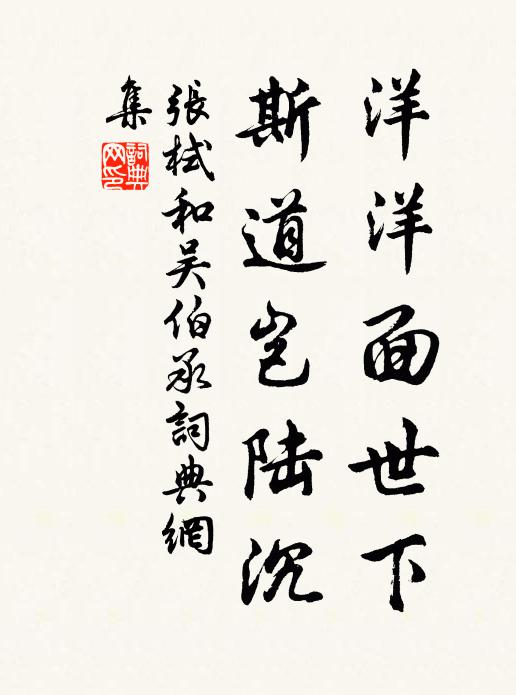 洋洋面世下
斯道岂陆沉
張栻和吴伯承詞典網
集
詞典网印